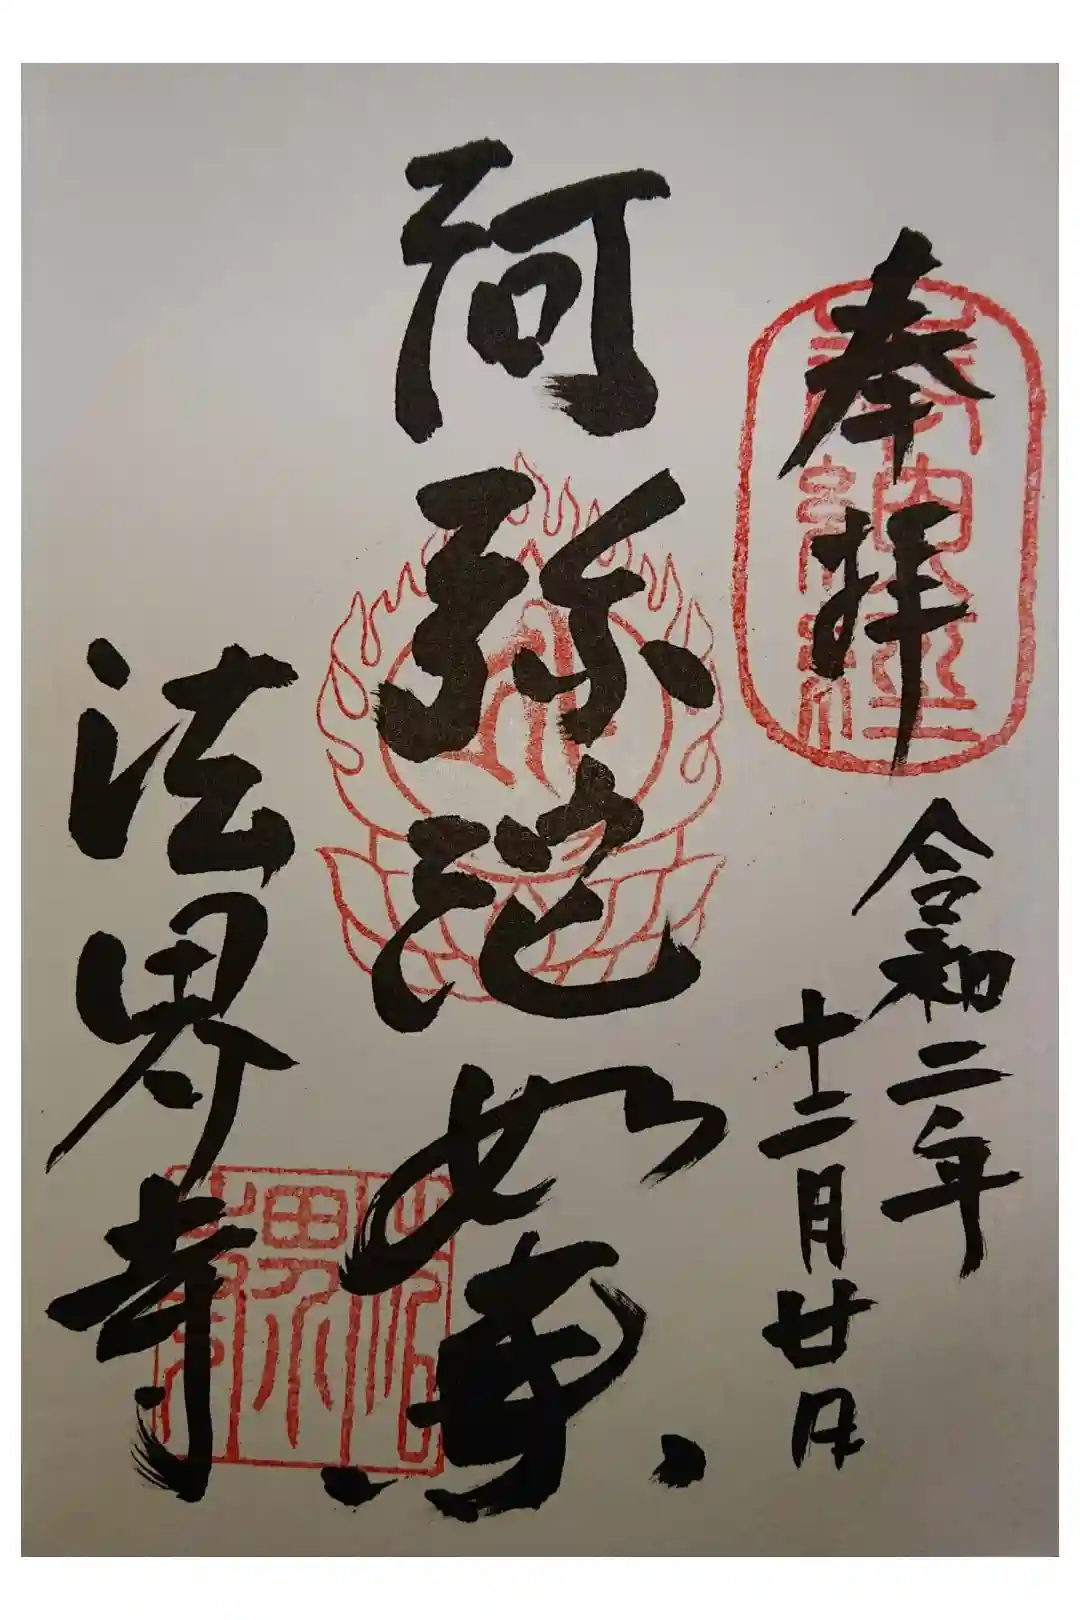 奉拝
令和二年
十二月廿日
阿弥陀如来
法界寺
奉納経
法界寺